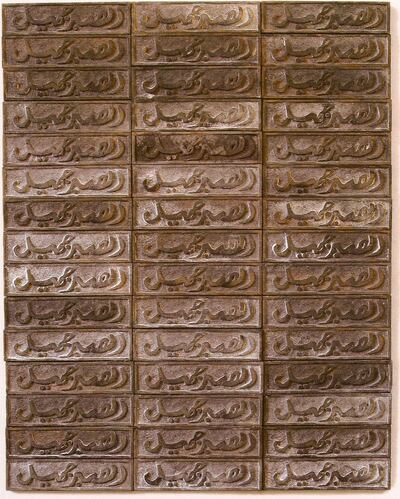 الصبر جميل الصبر جميل الصبر جميل
الصبر جميل الصبر جميل الصبر جميل
الصبر جميل الصبر جميل الصبر جميل
الصبر جميل الصبر جميل الصبر جميل
الصبر جميل الصبر جميل الصبر جميل
الصبر جميل الصبر جميل الصبر جميل
الصبر جميل الصبر جميل الصبر جميل
الصبر جميل الصبر جميل الصبر جميل
الصبر جميل الصبر جميل الصبر جميل
الصبر جميل الصبر جميل الصبر جميل
الصبر جميل الصبر جميل الصبر جميل
الصبر جميل الصبر جميل الصبر جميل
الصبر جميل الصبر جميل الصبر جميل
الصبر جميل الصبر جميل الصبر جميل
الصبر جميل الصبر جميل الصبر جميل